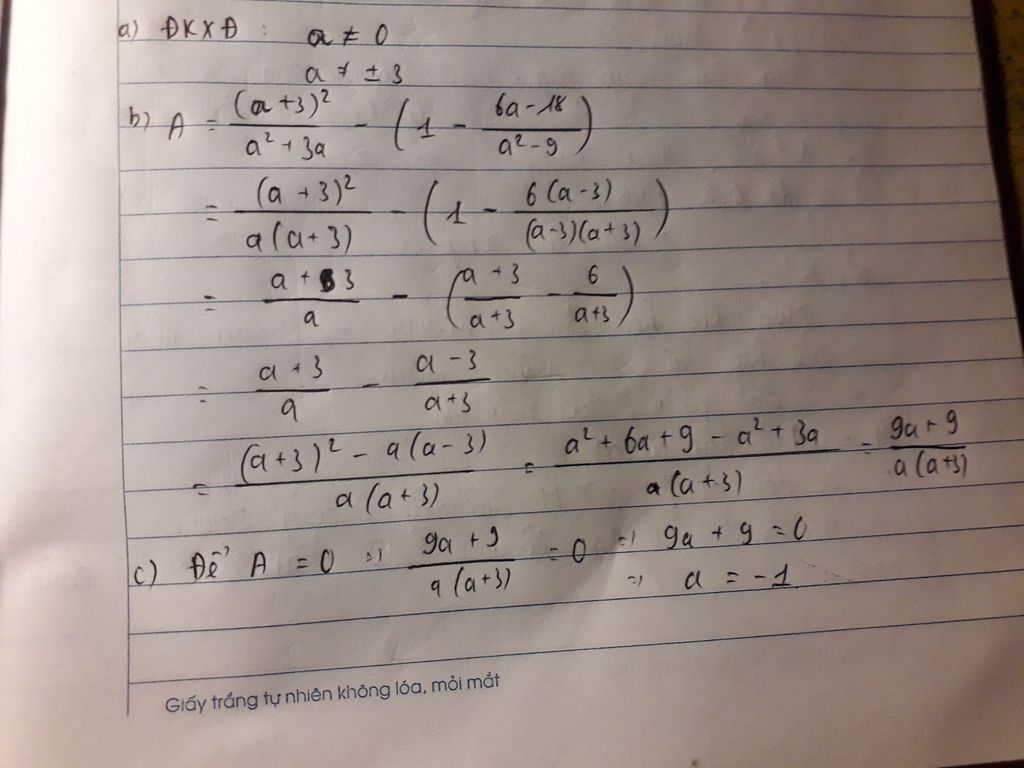 a) ĐKXĐ : a ≠ 0
a ≠ ± 3
b) A = (a+3)²/(a² + 3a) - (1 - (6a-18)/(a²-9))
= (a+3)²/(a(a+3)) - (1 - 6(a-3)/((a-3)(a+3)))
= (a+3)/a - ((a+3)/(a+3) - 6/(a+3))
= (a+3)/a - (a-3)/(a+3)
= ((a+3)² - a(a-3))/(a(a+3)) = (a² + 6a + 9 - a² + 3a)/(a(a+3)) = (9a+9)/(a(a+3))
c) Để A = 0 => (9a+9)/(a(a+3)) = 0 => 9a + 9 = 0
=> a = -1
Giấy trắng tự nhiên không lóa, mỏi mắt